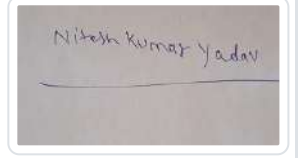 Nitesh Kumar Yadav